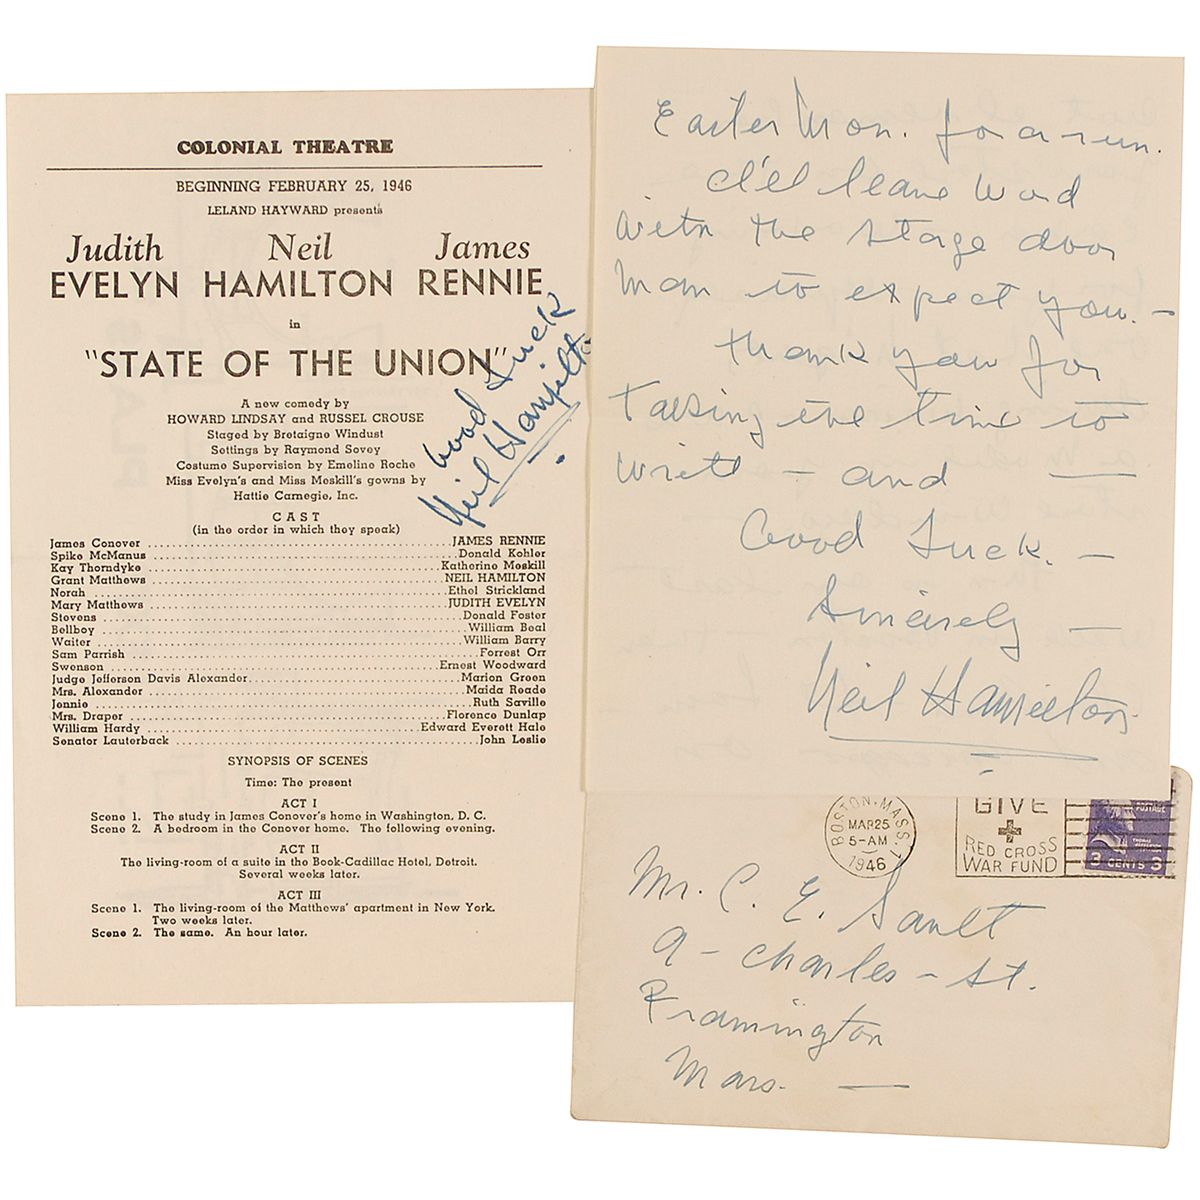 COLONIAL THEATRE
BEGINNING FEBRUARY 25, 1946
LELAND HAYWARD presents
Judith Neil James
EVELYN HAMILTON RENNIE
in
"STATE OF THE UNION"
A new comedy by
HOWARD LINDSAY and RUSSEL CROUSE
Staged by Bretaigne Windust
Settings by Raymond Sovey
Costume Supervision by Emeline Roche
Miss Evelyn's and Miss Meskill's gowns by
Hattie Carnegie, Inc.
Good Luck
Neil Hamilton
CAST
(in the order in which they speak)
James Conover ........ JAMES RENNIE
Spike McManus ........ Donald Kohler
Kay Thorndyke ........ Katherine Meskill
Grant Matthews ........ NEIL HAMILTON
Norah ........ Ethel Strickland
Mary Matthews ........ JUDITH EVELYN
Stevens ........ Donald Foster
Bellboy ........ William Beal
Waiter ........ William Barry
Sam Parrish ........ Forrest Orr
Swenson ........ Ernest Woodward
Judge Jefferson Davis Alexander ........ Marion Green
Mrs. Alexander ........ Maida Reade
Jennie ........ Ruth Saville
Mrs. Draper ........ Florence Dunlap
William Hardy ........ Edward Everett Hale
Senator Lauterback ........ John Leslie
SYNOPSIS OF SCENES
Time: The present
ACT I
Scene 1. The study in James Conover's home in Washington, D. C.
Scene 2. A bedroom in the Conover home. The following evening.
ACT II
The living-room of a suite in the Book-Cadillac Hotel, Detroit.
Several weeks later.
ACT III
Scene 1. The living-room of the Matthews' apartment in New York.
Two weeks later.
Scene 2. The same. An hour later.
Easter Mon. for a run.
I'll leave word
with the stage door
man to expect you. —
Thank you for
taking the time to
write — and —
Good Luck. —
Sincerely —
Neil Hamilton.
BOSTON, MASS. 7
MAR 25
5-AM
1946
GIVE
RED CROSS
WAR FUND
POSTAGE
3 CENTS 3
Mr. C. E. Sault
9 - Charles - St.
Framington
Mass. —